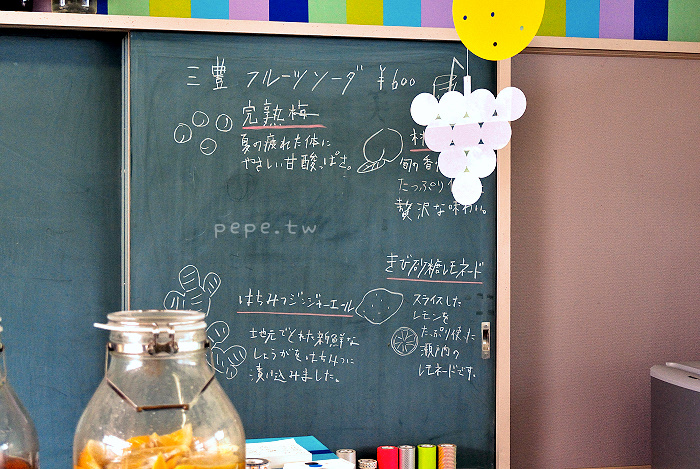 三豊 フルーツソーダ ¥600
完熟梅
夏の疲れた体に
やさしい甘酸っぱさ。
旬の香
たっぷり
贅沢な味わい。
pepe.tw
きび砂糖レモネード
スライスした
レモンを
たっぷり使った
瀬戸内の
レモネードです。
はちみつジンジャーエール
地元でとれた新鮮な
しょうがをはちみつに
漬け込みました。